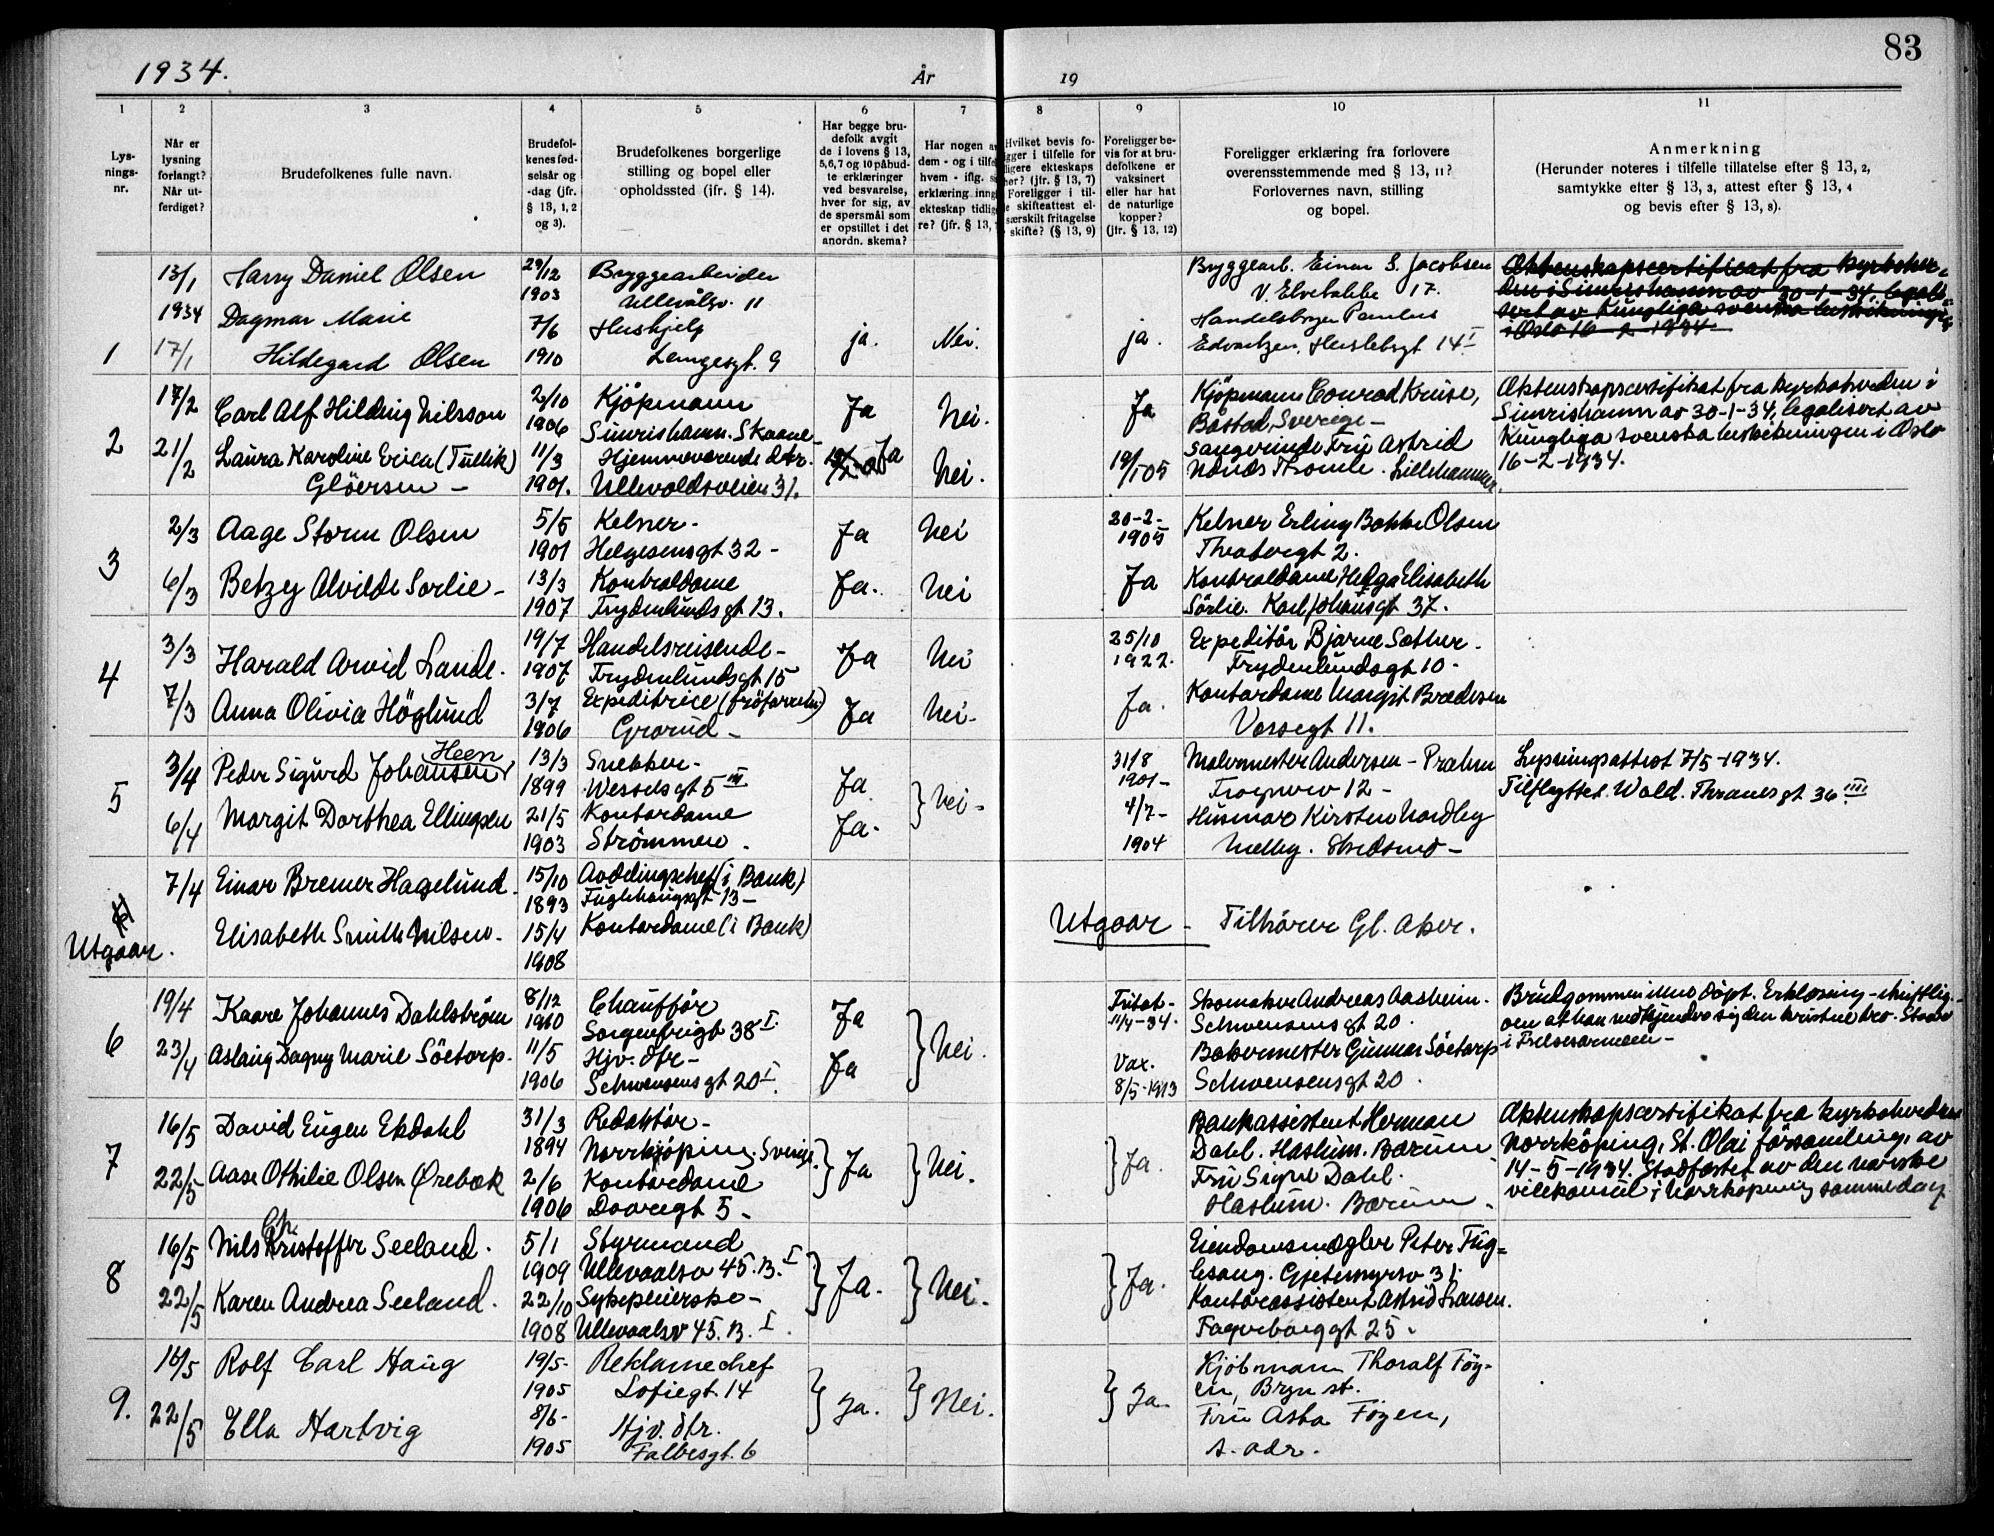 83
1934.
År
19
1
2
3
4
5
6
7
8
9
10
11
Lys-
nings-
nr.
Når er
lysning
forlangt?
Når ut-
ferdiget?
Brudefolkenes fulle navn.
Brudefol-
kenes fød-
selsår og
-dag (jfr.
§ 13, 1, 2
og 3).
Brudefolkenes borgerlige
stilling og bopel eller
opholdssted (jfr. § 14).
Har begge bru-
defolk avgit
de i lovens § 13,
5, 6, 7 og 10 påbud-
te erklæringer
ved besvarelse,
hver for sig, av
de spørsmål som
er opstillet i det
anordn. skema?
Har nogen a
dem - og i tilfe
hvem - iflg. s
erklæring inng
ekteskap tidlig
re? (jfr. § 13,
Hvilket bevis fo-
gger i tilfelle for
ligere ekteskaps
her? (jfr. § 13, 7)
Foreligger i til-
e skifteattest el-
særskilt fritagelse
skifte? (§ 13, 9)
Foreligger be-
vis for at bru-
defolkene er
vaksinert
eller har hat
de naturlige
kopper?
(jfr. § 13, 12)
Foreligger erklæring fra forlovere
overensstemmende med § 13, 11?
Forlovernes navn, stilling
og bopel.
Anmerkning
(Herunder noteres i tilfelle tillatelse efter § 13, 2,
samtykke efter § 13, 3, attest efter § 13, 4
og bevis efter § 13, 8).
1
13/1
1934
17/1
Harry Daniel Olsen
Dagmar Marie
Hildegard Olsen
29/12
1903
7/6
1910
Bryggearbeider
Ullevålsv. 11
Hushjelp
Langesgt. 9
ja.
Nei.
ja.
Bryggearb. Einar S. Jacobsen
V. Elvebakke 17.
Handelsborger Paulus
Edvartzen, Herslebsgt 14 I
Æktenskapscertificat fra Kyrkoher-
den i Simrishamn av 30-1-34, legali-
sert av Kungliga svenska beskickningen
i Oslo 16-2-1934.
2
17/2
21/2
Carl Alf Hilding Nilsson
Laura Karoline Erica (Tullik)
Gløersen -
2/10
1906
11/3
1901.
Kjöpmann
Simrishamn. Skaane -
Hjemmeværende dtr.
Ullevoldsveien 31.
Ja
Ja
Nei.
Nei.
Ja
19/5 05
Kjöpmann Conrad Kruse,
Båstad, Sverige -
Sangerinde Frü Astrid
Næss Thomle. Lillehammer.
Æktenskapscertifikat fra Kyrkoherden i
Simrishamn av 30-1-34, legalisert av
Kungliga svenska beskickningen i Oslo
16-2-1934.
3
2/3
6/3
Aage Storm Olsen
Betzy Alvilde Sørlie -
5/5
1901
13/3
1907
Kelner -
Helgesensgt 32 -
Kontroldame
Frydenlundsgt 13.
Ja
Ja.
Nei
Nei
20-2-
1905
Ja
Kelner Erling Bakke Olsen
Theatergt 2.
Kontroldame Helga Elisabeth
Sörlie. Karl Johansgt 37.
4
3/3
7/3
Harald Arvid Lande.
Anna Olivia Höglund
19/7
1907
3/7
1906
Handelsreisende -
Frydenlundsgt 15
Expeditrice
Grorud -
Ja
Ja
Nei
Nei -
25/10
1922.
Ja.
Expeditör Bjarne Sæther.
Frydenlundsgt 10 -
Kontordame Margit Brædesen
Vossegt 11.
5
3/4
6/4
Heen
Peder Sigurd Johansen
Margit Dorthea Ellingsen
13/3
1899
21/5
1903
Snekker -
Wesselsgt 5 III
Kontordame
Strömmen.
Ja
Ja.
Nei -
31/8
1901 -
4/7 -
1904
Malermester Andersen - Præhm
Frognerv 12 -
Husmor Kirsten Nordby
Melby. Skedsmo -
Lysningsattest 7/5-1934.
Tilflyttet. Wald. Thranesgt 36 III
Utgaar.
7/4
Einar Bremer Hagelund.
Elisabeth Smith Nilsen.
15/10
1893
15/4
1908
Avdelingschef (i Bank)
Fuglehaugsgt 13 -
Kontordame (i Bank)
Utgaar -
Tilhörer Gl. Aker.
6
19/4
23/4
Kaare Johannes Dahlström
Aslaug Dagny Marie Söetorp.
8/12
1910
11/5
1906
Chauffør
Sorgenfrigt 38 I.
Hjv. dtr -
Schwensensgt 20 I.
Ja
Ja
Nei.
Fritat -
11/4-34.
Vax.
8/5-1913
Skomaker Andreas Aasheim.
Schwensensgt 20.
Bakermester Gunnar Söetorp
Schwensensgt 20.
Brudgommen ikke döpt. Erklæring - skriftlig -
om at han vedkjender sig den kristne tro.
i Frelsesarmeen -
7
16/5
22/5
David Eugen Ekdahl
Aase Othilie Olsen Ørebæk
31/3
1894
2/6
1906
Redaktør -
Norrköping. Sverige.
Kontordame
Dovregt 5 -
Ja
Nei.
Ja.
Bankassistent Herman
Dahl. Haslum. Bærum
Frü Signe Dahl.
Haslum. Bærum.
Æktenskapscertifikat fra Kyrkoherden
Norrköping, St. Olai församling, av
14-5-1934. Stadfæstet av den norske
vicekonsul i Norrköping samme dag
8
16/5
22/5
Ch.
Nils Kristoffer Seeland.
Karen Andrea Seeland.
5/1
1909
22/10
1908
Styrmand
Ullevaalsv 45. B. I
Sykepleierske -
Ullevaalsv 45. B. I.
Ja.
Nei.
Ja.
Eiendomsmægler Peter Füg-
lesang. Gjetemyrsv 31.
Kontorassistent Astrid Larsen.
Fagerborggt 25.
9.
16/5
22/5
Rolf Carl Haug
Ella Hartvig
19/5-
1905
8/6-
1905
Reklamechef
Sofiegt 14
Hjv. dtr.
Falbesgt. 6
Ja.
Nei.
Ja.
Kjöbmann Thoralf Föy-
en, Bryn st.
Frü Asta Föyen,
s. adr.